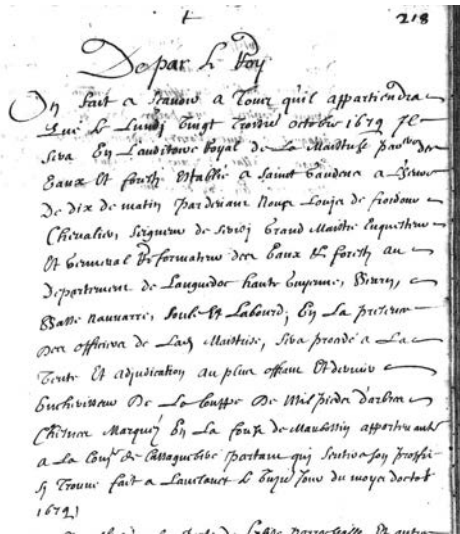 218
De par le Roy
On fait a scavoir a tous quil appartiendra
Que le Lundy vingt troisie octobre 1679 Il
sera En Lauditoire Royal de La Maistrise par
Eaux Et forests Establie a Saint Gaudens a L'heure
De dix de matin Pardevant Nous Louis de froidour
Chevalier, Seigneur de Serisy Grand Maistre Enquesteur
Et General Reformateur des Eaux Et forests au
Departement de Languedoc haute Guyenne, Bearn,
Basse Navarre, Soule Et Labourd; En La presence
Des officiers de Lad Maistrise, sera procedé a La
Vente Et adjudication au plus offrant Et dernier
Encherisseur De La Couppe De Mil pieds d'arbres
Chesnes Marquez En La de appartenante
a La de Castaguebive Partant qui
sy Trouve fait a Le Jour du moys doctob
1679